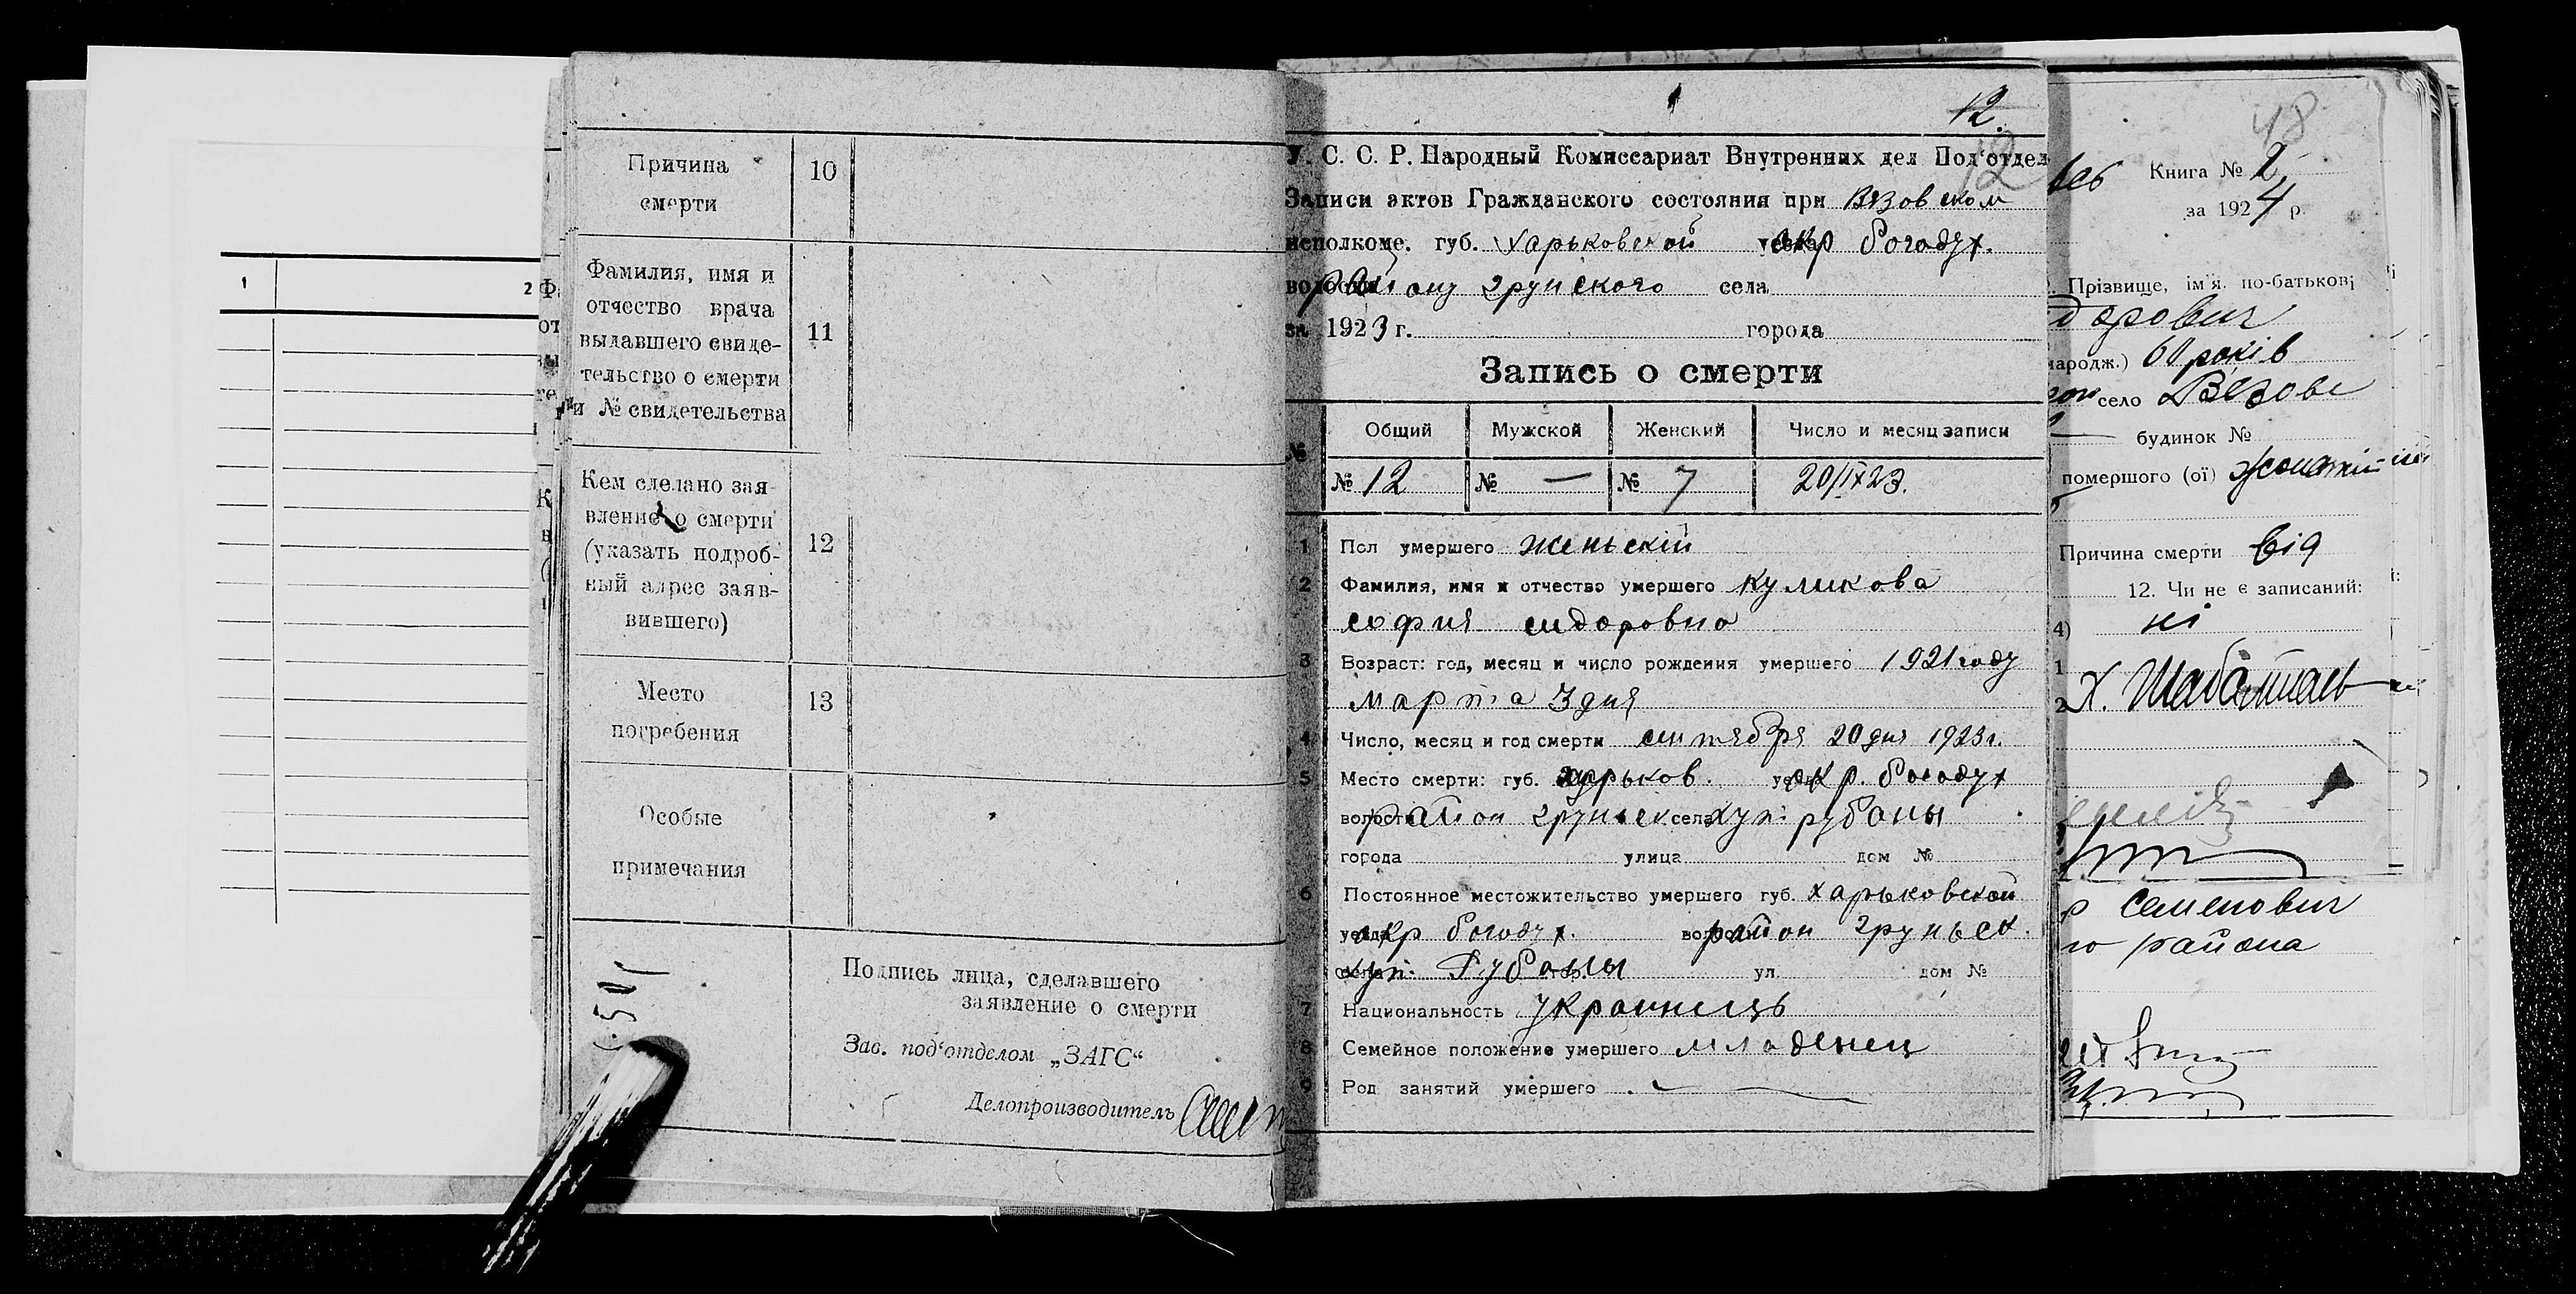 1
2
Причина
смерти
10
Фамилия, имя и
отчество врача
выдавшего свиде-
тельство о смерти
и № свидетельства
11
Кем сделано зая-
вление о смерти
(указать подроб-
ный адрес заяв-
вившего)
12
Место
погребения
13
Особые
примечания
Подпись лица, сделавшего
заявление о смерти
Зав. под‘отделом „ЗАГС“
Делопроизводитель
12
12
У. С. С. Р. Народный Комиссариат Внутренних дел Под‘отдел
Записи актов Гражданского состояния при Вязовском
исполкоме. губ. Харьковской окр Богодух.
району грунского села
за 1923 г. города
Запись о смерти
№ Общий Мужской Женский Число и месяц записи
№ 12 № — № 7 20/IX23.
1 Пол умершего женьский
2 Фамилия, имя и отчество умершего Куликова
софия сидоровна
3 Возраст: год, месяц и число рождения умершего 1921 году
марта 3 дня
4 Число, месяц и год смерти сентября 20 дня 1923 г.
5 Место смерти: губ. харьков. окр. богодух
район груньск села хут. рубаны
города улица дом №
6 Постоянное местожительство умершего губ. харьковской
уезда окр богодух. район груньск.
хут. Рубаны ул. дом №
7 Национальность украинець
8 Семейное положение умершего младенец
9 Род занятий умершего —
48
Книга № 2
за 1924 р.
Прізвище, ім'я, по-батькові
дорович
народж.) 60 років
село Вязове
— будинок №
помершого (ої)
Причина смерти від
12. Чи не є записаний:
4) ні
1
2 Х.
Семенович
го района